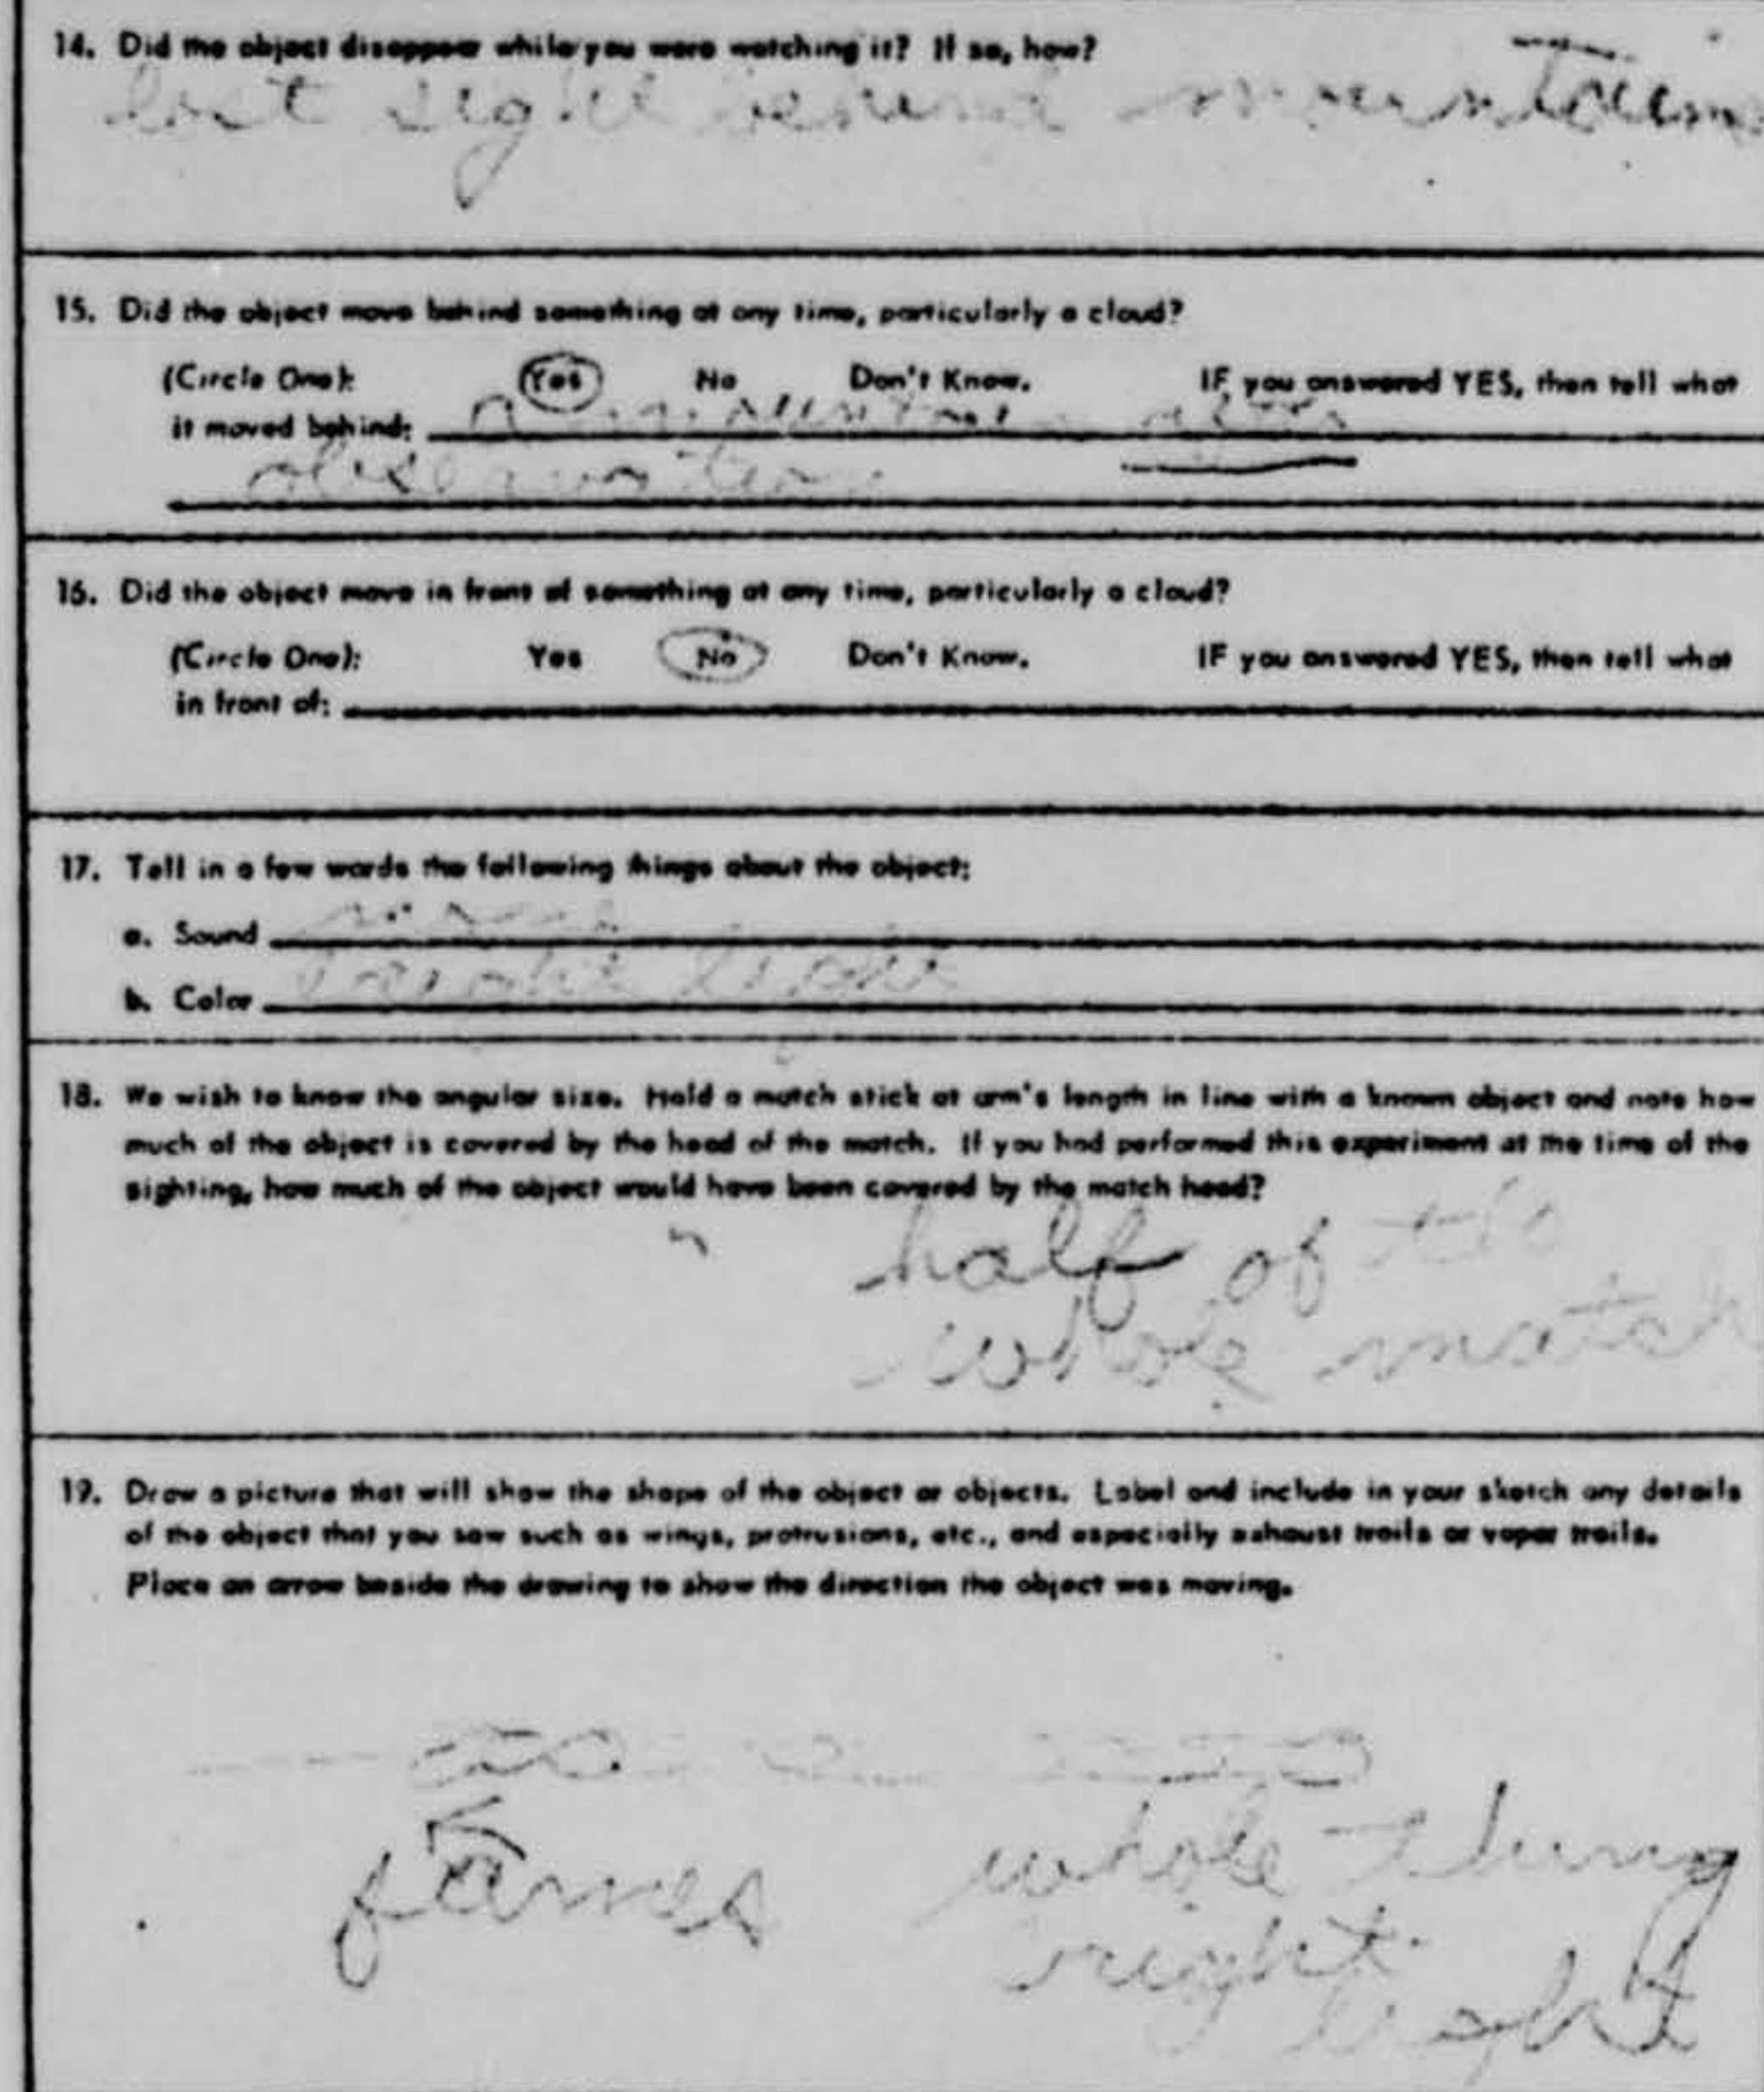 14. Did the object disappear while you were watching it? If so, how?
lost sight behind mountain
15. Did the object move behind something at any time, particularly a cloud?
(Circle One): Yes No Don't Know. IF you answered YES, then tell what
it moved behind: mountain after
observation
16. Did the object move in front of something at any time, particularly a cloud?
(Circle One): Yes No Don't Know. IF you answered YES, then tell what
in front of:
17. Tell in a few words the following things about the object:
a. Sound
b. Color bright light
18. We wish to know the angular size. Hold a match stick at arm's length in line with a known object and note how
much of the object is covered by the head of the match. If you had performed this experiment at the time of the
sighting, how much of the object would have been covered by the match head?
half of the
whole match
19. Draw a picture that will show the shape of the object or objects. Label and include in your sketch any details
of the object that you saw such as wings, protrusions, etc., and especially exhaust trails or vapor trails.
Place an arrow beside the drawing to show the direction the object was moving.
whole thing
light